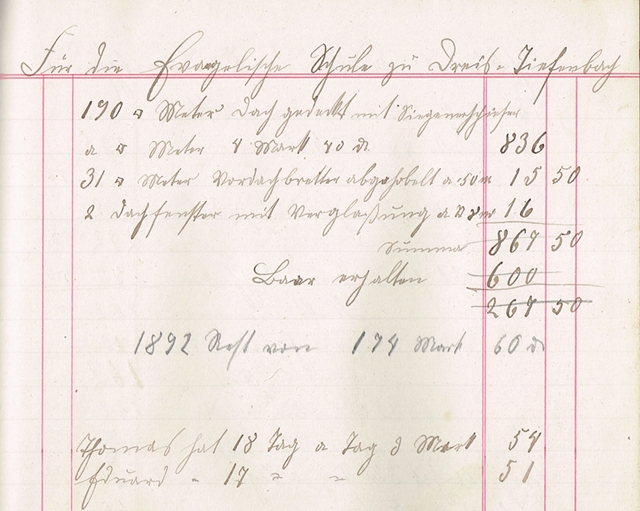 Für die Evangelische Schule zu Dreis-Tiefenbach
190 □ Meter Dach gedeckt mit Siegenerschiefer
a □ Meter 4 Mark 40 d 836
31 □ Meter Vordachbretter abgehobelt a 50 15 50
2 Dachfenster mit Verglaßung a 8 m 16
Summa 867 50
Baar erhalten 600
267 50
1892 Rest von 174 Mark 60 d
Thomas hat 18 Tag a Tag 3 Mark 54
Eduard " 17 " " 51